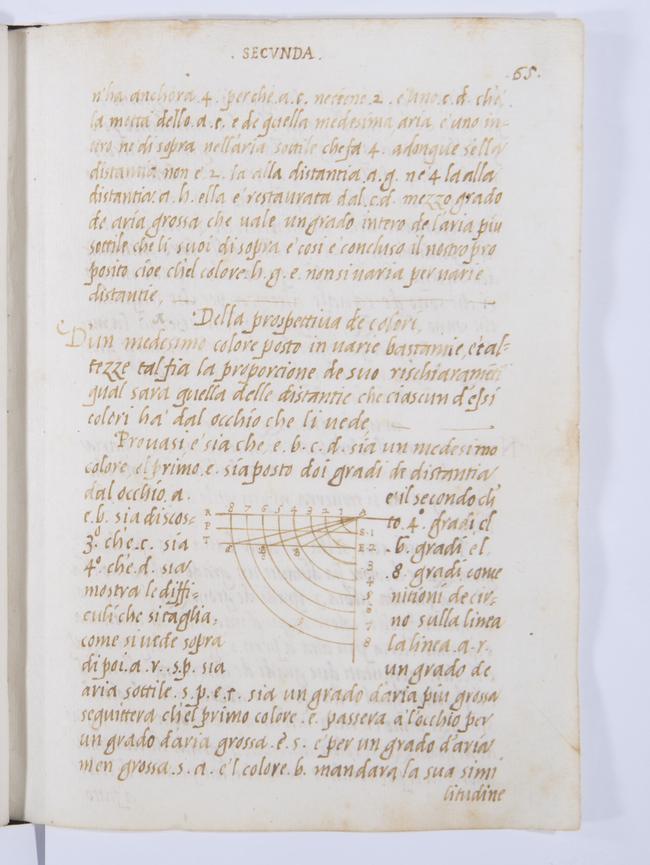 . SECVNDA .
. 65 .
n'ha anchora 4. perche .a.c. nettene 2. e' uno .c.d. che,
la metta dello .a.c. e de quella medesima aria e' uno in-
tero ne di sopra nell'aria sottile che fa 4. adonque se lla
distantia non e' 2. la alla distantia .a.g. ne' 4 la alla
distantia .a.h. ella e' restaurata dal .c.d. mezzo grado
de aria grossa che vale un grado intero de l'aria piu
sottile che li suoi di sopra e' cosi e' concluso il nostro pro
posito cioe ch'el colore .h.g.e. non si uaria per uarie
distantie,
Della prospettiua de colori,
D'un medesimo colore posto in uarie bastantie, et al=
tezze tal fia la proporcione de suo rischiaramen
qual sara quella delle distantie che ciascun d'essi
colori ha' dal occhio che li uede
Prouasi e' sia che, e. b. c. d. sia un medesimo
colore, el primo .e. sia posto doi gradi de distantia
dal occhio, a. e' il secondo ch'
e. b. sia discos= to .4°. gradi el
3° che .c. sia .6. gradi e l.
4° che .d. sia .8. gradi come
mostra le diffi= nitioni de cir=
culi che si taglia, no sulla linea
come si uede sopra la linea .a.r.
di poi .a.r. .s.p. sia un grado de
aria sottile .s.p.e.t. sia un grado d'aria piu grossa
seguittera ch'el primo colore .e. passera a l'occhio per
un grado d'aria grossa .e.s. e' per un grado d'aria
men grossa .s.a. e' l colore .b. mandara la sua simi
litudine
R 8 7 6 5 4 3 2 1 A
P S 1
T E 2
3
4
5
6
7
8